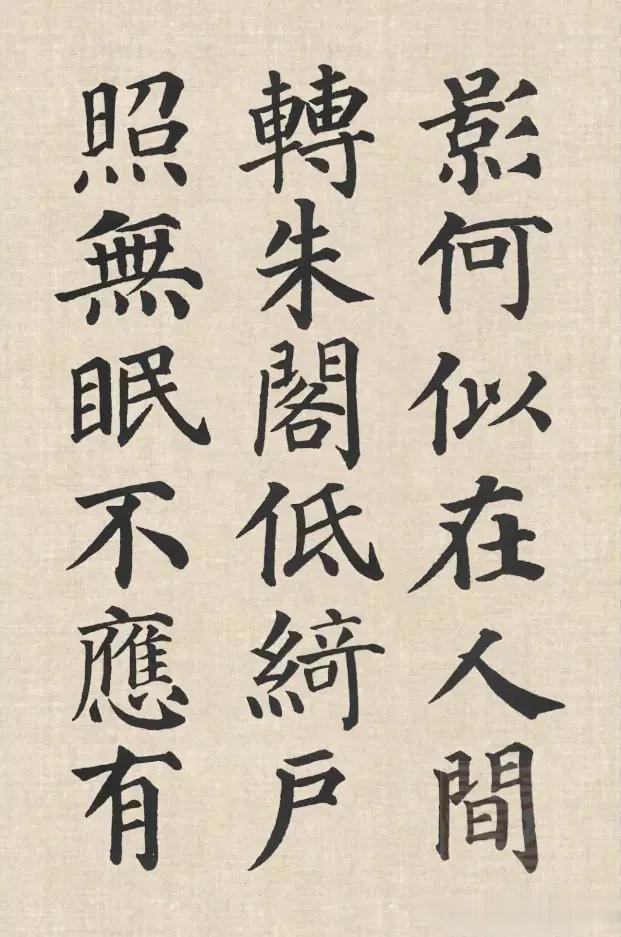 影何似在人間
轉朱閣低綺戶
照無眠不應有